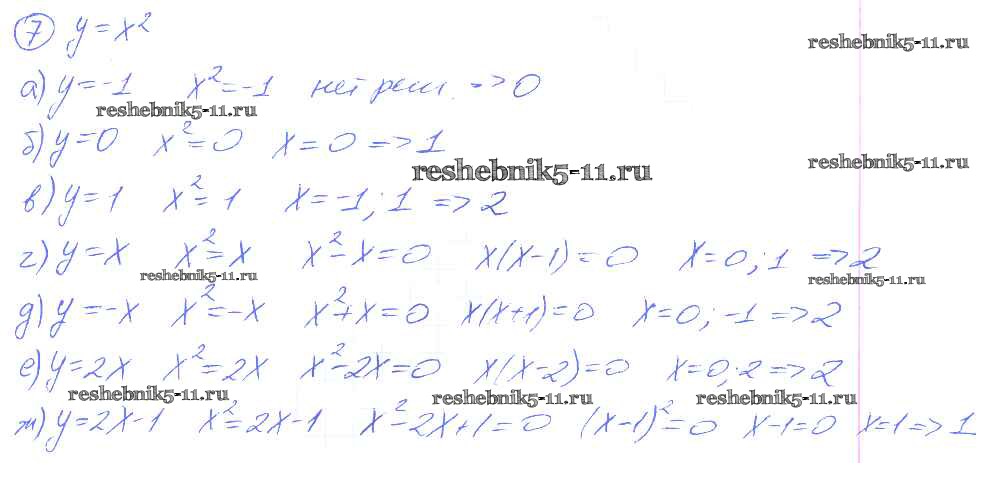 7 y = x²
reshebnik5-11.ru
а) y = -1 x² = -1 нет реш. => 0
reshebnik5-11.ru
б) y = 0 x² = 0 x = 0 => 1
reshebnik5-11.ru
reshebnik5-11.ru
в) y = 1 x² = 1 x = -1; 1 => 2
г) y = x x² = x x² - x = 0 x(x-1) = 0 x = 0; 1 => 2
reshebnik5-11.ru reshebnik5-11.ru
д) y = -x x² = -x x² + x = 0 x(x+1) = 0 x = 0; -1 => 2
е) y = 2x x² = 2x x² - 2x = 0 x(x-2) = 0 x = 0; 2 => 2
reshebnik5-11.ru reshebnik5-11.ru reshebnik5-11.ru
ж) y = 2x - 1 x² = 2x - 1 x² - 2x + 1 = 0 (x-1)² = 0 x - 1 = 0 x = 1 => 1